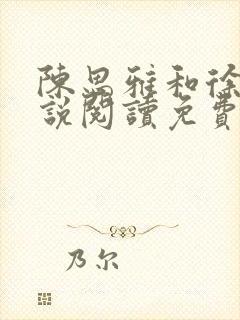 陳思雅和徐
說閱讀免費
乃尔